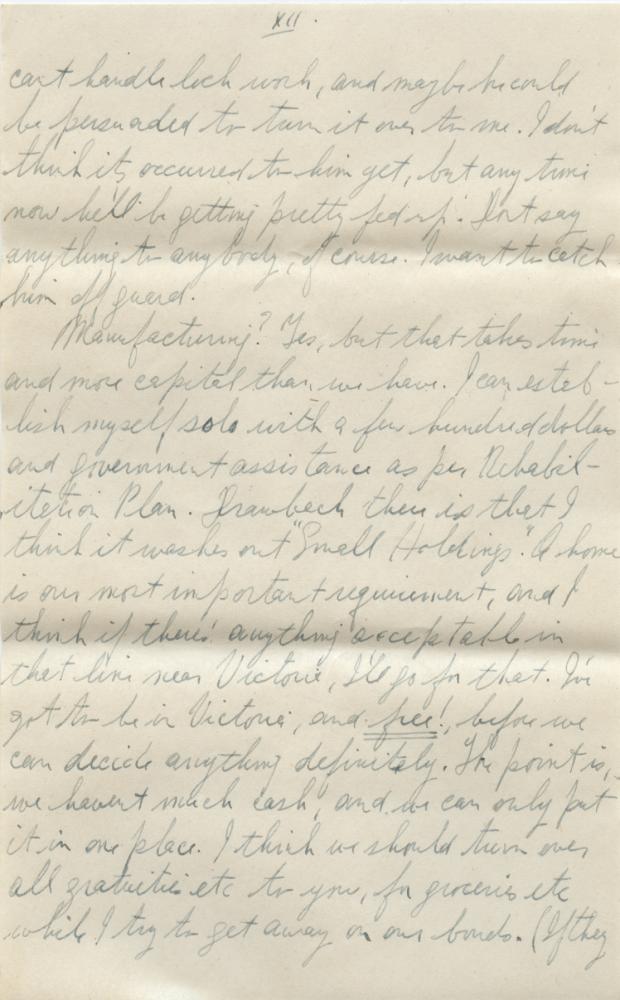 XII.
can't handle lock work, and maybe he could
be persuaded to turn it over to me. I don't
think it's occurred to him yet, but any time
now he'll be getting pretty fed up. Don't say
anything to anybody, of course. I want to catch
him off guard.
Manufacturing? Yes, but that takes time
and more capital than we have. I can estab-
lish myself solo with a few hundred dollars
and government assistance as per Rehabil-
itation Plan. Drawback there is that I
think it washes out "Small Holdings". A home
is our most important requirement, and I
think if there's anything acceptable in
that line near Victoria, I'll go for that. I've
got to be in Victoria, and free!, before we
can decide anything definitely. The point is,
we haven't much cash, and we can only put
it in one place. I think we should turn over
all gratuities etc to you, for groceries etc
while I try to get away on our bonds. (If they